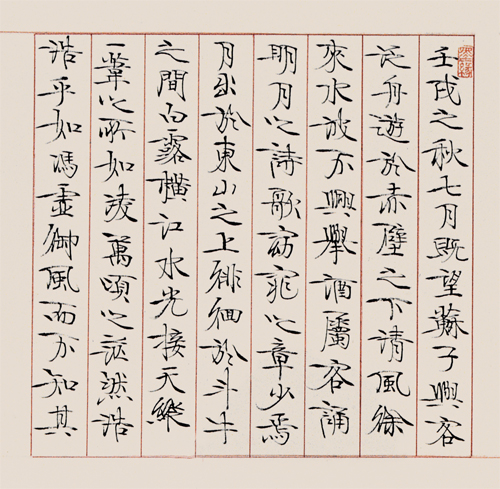 壬戌之秋七月既望蘇子與客
泛舟遊於赤壁之下清風徐
來水波不興舉酒屬客誦
明月之詩歌窈窕之章少焉
月出於東山之上徘徊於斗牛
之間白露橫江水光接天縱
一葦之所如凌萬頃之茫然浩
浩乎如馮虛御風而不知其